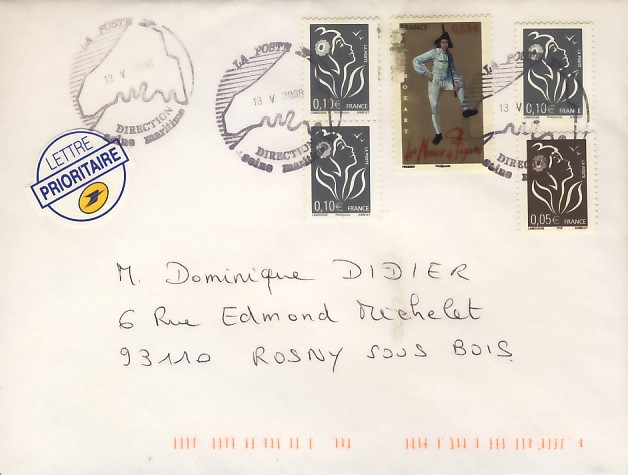 LA POSTE
13 V 2008
DIRECTION
seine maritime
LA POSTE
13 V 2008
DIRECTION
seine
LA POSTE
13 V
DIREC
seine
LETTRE
PRIORITAIRE
LA POSTE
0,10€ FRANCE
LA POSTE
0,10€ FRANCE
FRANCE 0,53€
MOZART
Les Noces de Figaro
LA POSTE
0,10€ FRANCE
LA POSTE
0,05€ FRANCE
M. Dominique DIDIER
6 Rue Edmond Michelet
93110 ROSNY SOUS BOIS